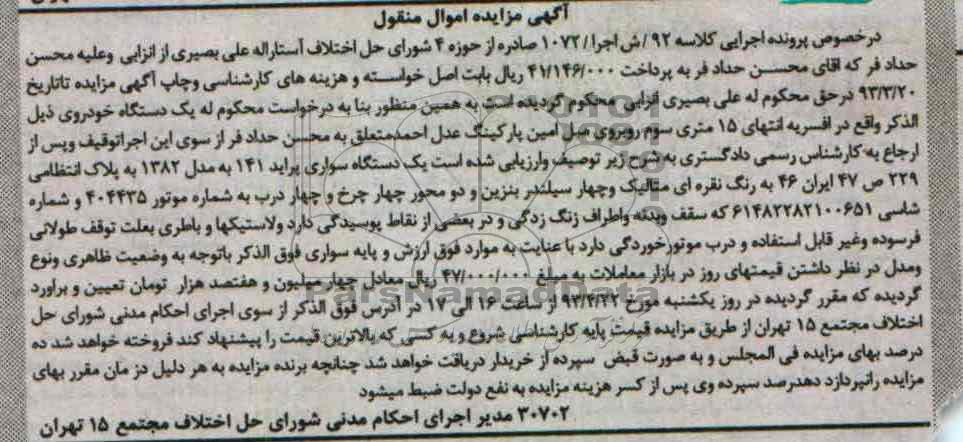 آگهی مزایده اموال منقول
درخصوص پرونده اجرایی کلاسه ۹۲ /ش اجرا / ۱۰۷۲ صادره از حوزه ۴ شورای حل اختلاف آستاراله علی بصیری از انزابی وعلیه محسن
حداد فر که اقای محسن حداد فر به پرداخت ۴۱/۱۴۶/۰۰۰ ریال بابت اصل خواسته و هزینه های کارشناسی وچاپ آگهی مزایده تاتاریخ
۹۳/۳/۲۰ درحق محکوم له علی بصیری انزابی محکوم گردیده است به همین منظور بنا به درخواست محکوم له یک دستگاه خودروی ذیل
الذکر واقع در افسریه انتهای ۱۵ متری سوم روبروی مبل امین پارکینگ عدل احمدمتعلق به محسن حداد فر از سوی این اجراتوقیف وپس از
ارجاع به کارشناس رسمی دادگستری به شرح زیر توصیف وارزیابی شده است یک دستگاه سواری پراید ۱۴۱ به مدل ۱۳۸۲ به پلاک انتظامی
۲۲۹ ص ۴۷ ایران ۴۶ به رنگ نقره ای متالیک وچهار سیلندر بنزین و دو محور چهار چرخ و چهار درب به شماره موتور ۴۰۴۴۳۵ و شماره
شاسی ۶۱۴۸۲۲۸۲۱۰۰۶۵۱ که سقف وبدنه واطراف زنگ زدگی و در بعضی از نقاط پوسیدگی دارد ولاستیکها و باطری بعلت توقف طولانی
فرسوده وغیر قابل استفاده و درب موتورخوردگی دارد با عنایت به موارد فوق ارزش و پایه سواری فوق الذکر باتوجه به وضعیت ظاهری ونوع
ومدل در نظر داشتن قیمتهای روز در بازار معاملات به مبلغ ۴۷/۰۰۰/۰۰۰ ریال معادل چهار میلیون و هفتصد هزار تومان تعیین و براورد
گردیده که مقرر گردیده در روز یکشنبه مورخ ۹۳/۴/۲۲ از ساعت ۱۶ الی ۱۷ در آدرس فوق الذکر از سوی اجرای احکام مدنی شورای حل
اختلاف مجتمع ۱۵ تهران از طریق مزایده قیمت پایه کارشناسی شروع و به کسی که بالاترین قیمت را پیشنهاد کند فروخته خواهد شد ده
درصد بهای مزایده فی المجلس و به صورت قبض سپرده از خریدار دریافت خواهد شد چنانچه برنده مزایده به هر دلیل دز مان مقرر بهای
مزایده رانپردازد دهدرصد سپرده وی پس از کسر هزینه مزایده به نفع دولت ضبط میشود
۳۰۷۰۲ مدیر اجرای احکام مدنی شورای حل اختلاف مجتمع ۱۵ تهران
ParsNamadData